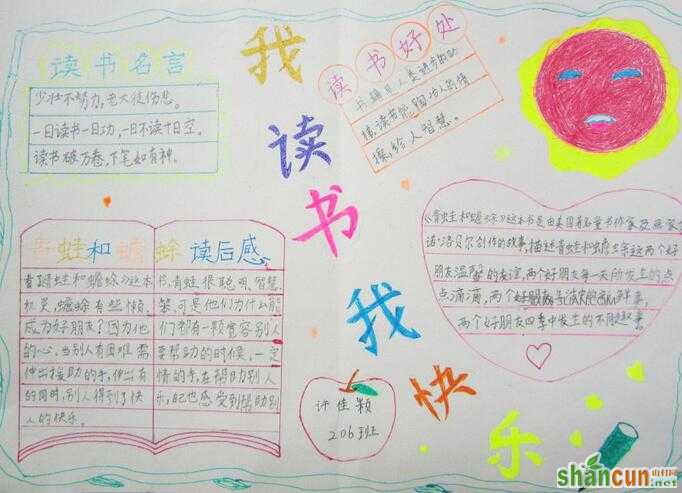 读书名言
少壮不努力,老大徒伤悲。
一日读书一日功,一日不读十日空。
读书破万卷,下笔如有神。
我
读
书
我
快
乐
读书好处
书籍是人类进步的动
操,给人智慧。
青蛙和蟾蜍 读后感
看了《青蛙和蟾蜍》这本
书,青蛙很聪明、智慧、
机灵,蟾蜍有些懒、
笨,可是他们为什么能
成为好朋友?因为他
们都有一颗宽容别人
的心,当别人有困难需
要帮助的时候,一定
伸出援助的手,伸出有
情的手,在帮助别人
的同时,别人得到了快
乐,自己也感受到帮助别
人的快乐。
《青蛙和蟾蜍》这本书是由美国著名童书作家
诺·洛贝尔创作的故事,描述青蛙和蟾蜍这两个好
朋友温馨的友谊,两个好朋友每一天所发生的点
点滴滴,两个好朋友
两个好朋友四季中发生的不同趣事。
许佳颖
206班
shancun
山村网
.net